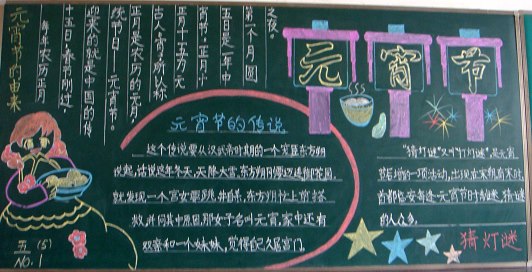 元宵节的由来
每年农历正月
十五日,春节刚过,
迎来的就是中国的传
统节日——元宵节。
正月是农历的元月,
宵,所以称
正月十五为元
宵节。正月十
五日是一年中
第一个月圆
之夜。
元宵节
元宵节的传说
这个传说要从汉武帝时期的一个宠臣东方朔
说起,话说这年冬天,天降大雪,东方朔要进御花园,
就发现一个宫女要跳井自杀,东方朔忙上前搭
救,并问其中原因,那女子名叫元宵,家中还有
双亲和一个妹妹,觉得自己久居宫门。
"猜灯谜"又叫"打灯谜",是元宵
节后增的一项活动,出现在宋朝。南宋时,
首都临安每逢元宵节时制谜,猜谜
的人众多。
猜灯谜
五(5)
NO.1